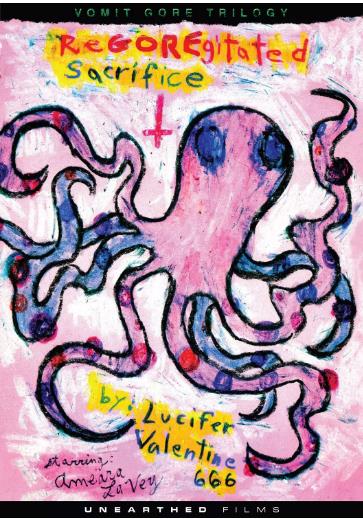 VOMIT GORE TRILOGY
ReGOREgitated
Sacrifice
by: Lucifer
Valentine
666
starring:
Ameara
LaVey
UNEARTHED FILMS